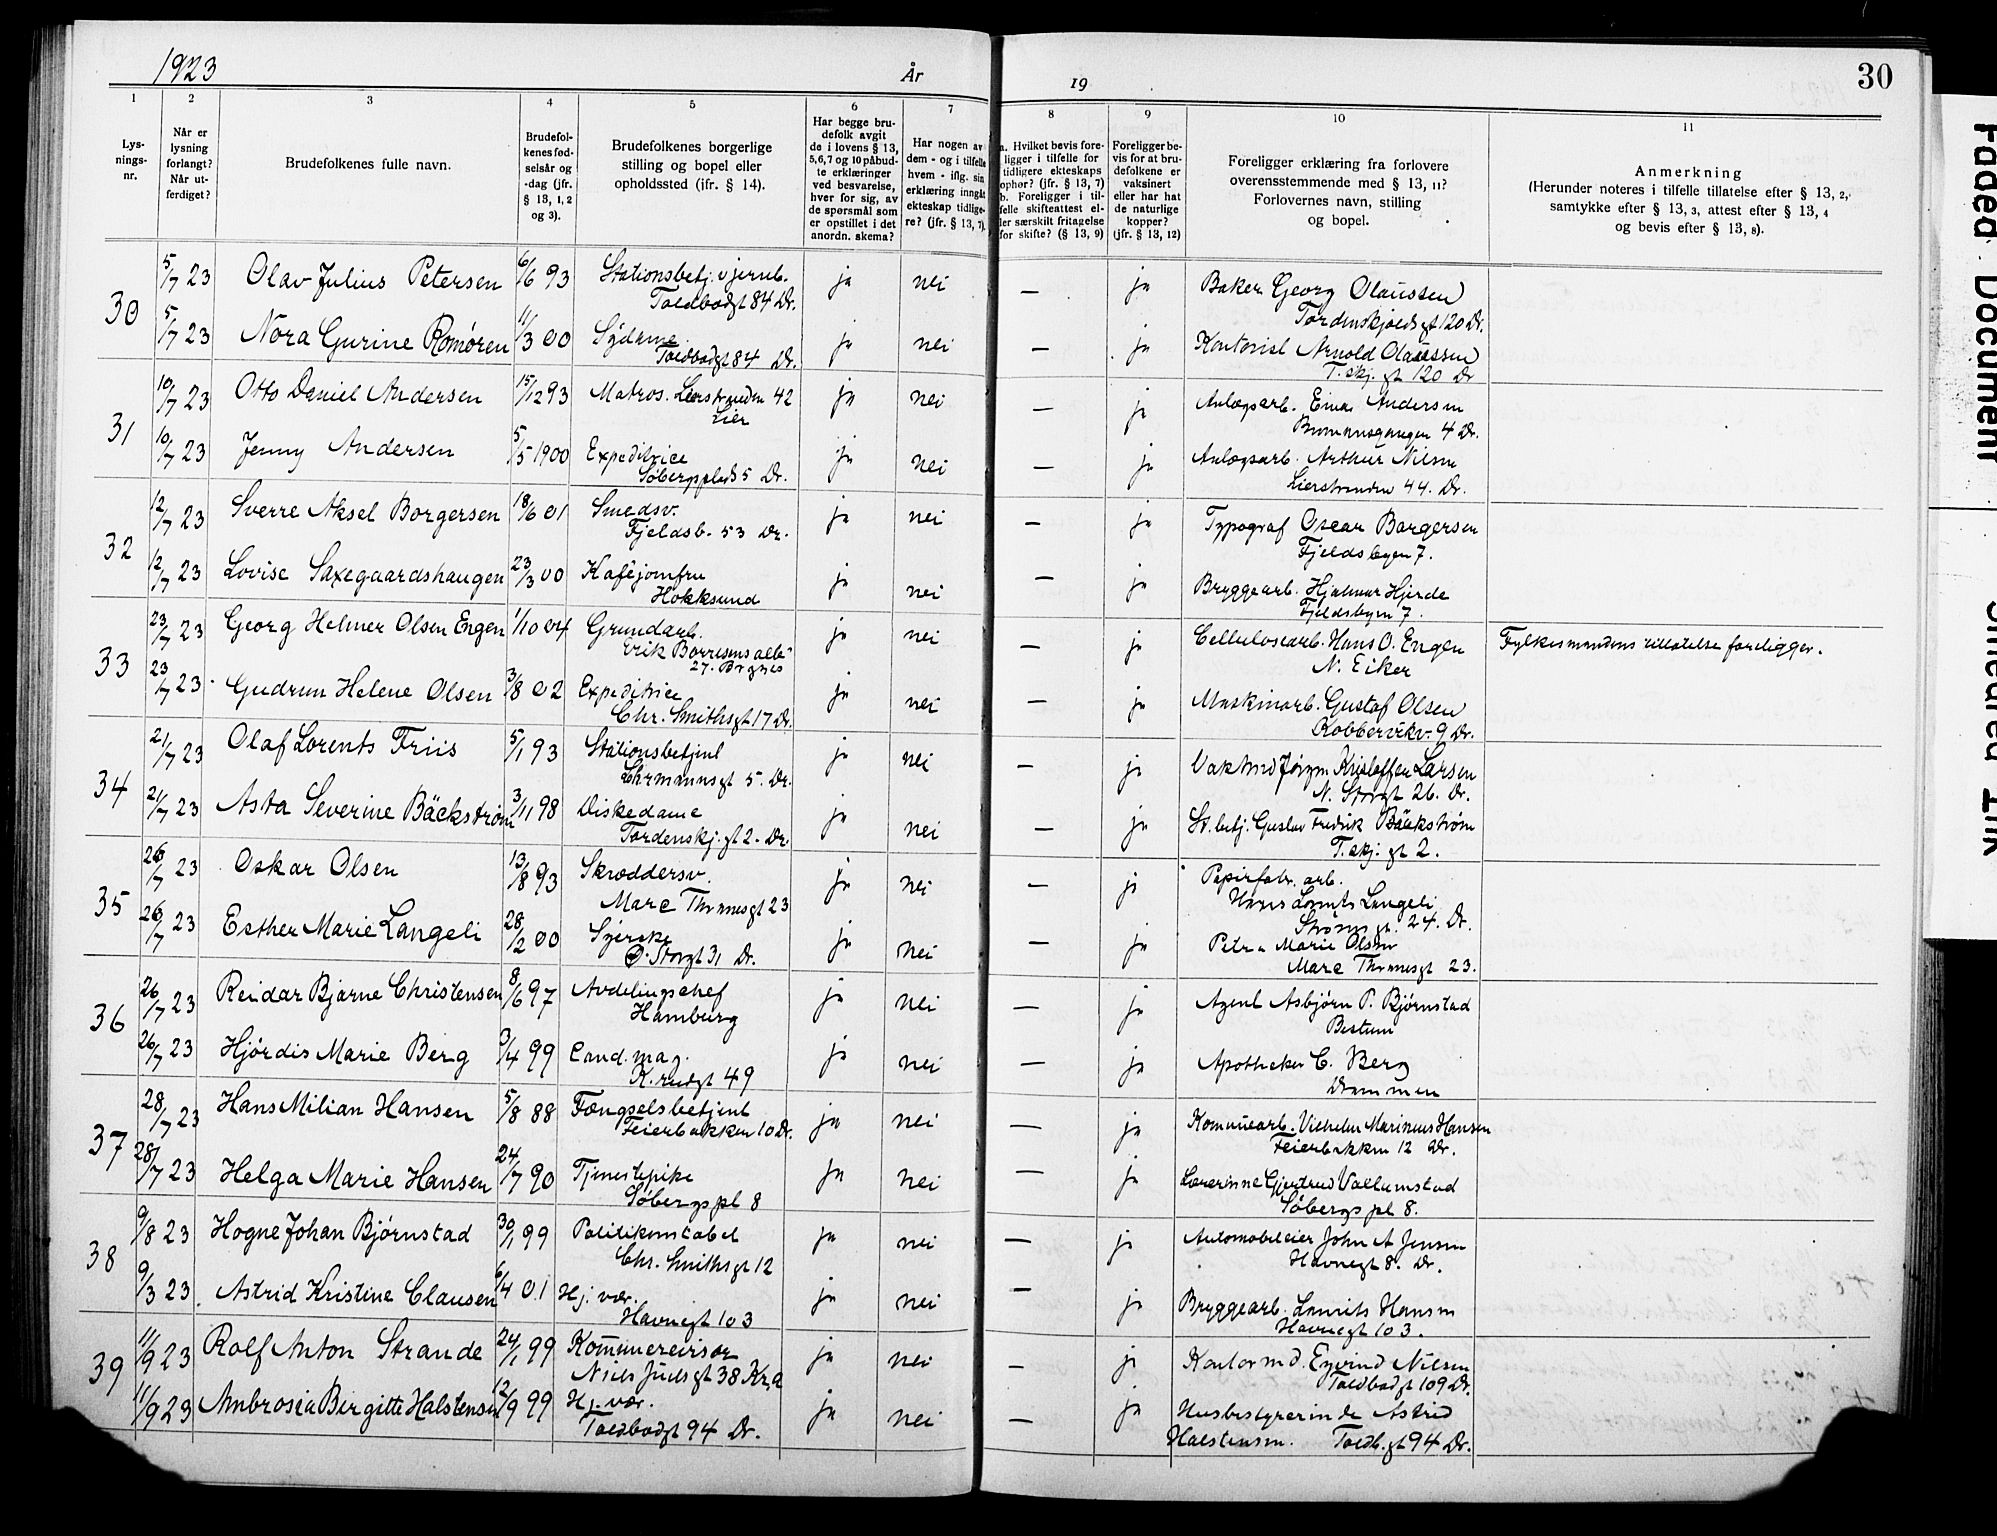 1923
År
19
30
1 2 3 4 5 6 7 8 9 10 11
Lys-
nings-
nr.
Når er
lysning
forlangt?
Når ut-
ferdiget?
Brudefolkenes fulle navn.
Brudefol-
kenes fød-
selsår og
-dag (jfr.
§ 13, 1, 2
og 3).
Brudefolkenes borgerlige
stilling og bopel eller
opholdssted (jfr. § 14).
Har begge bru-
defolk avgit
de i lovens § 13,
5,6,7 og 10 påbud-
te erklæringer
ved besvarelse,
hver for sig, av
de spørsmål som
er opstillet i det
anordn. skema?
Har nogen av
dem - og i tilfelle
hvem - iflg. sin
erklæring inngåt
ekteskap tidlige-
re? (jfr. § 13, 7).
a. Hvilket bevis fore-
ligger i tilfelle for
tidligere ekteskaps
ophør? (jfr. § 13, 7)
b. Foreligger i til-
felle skifteattest el-
ler særskilt fritagelse
for skifte? (§ 13, 9)
Foreligger be-
vis for at bru-
defolkene er
vaksinert
eller har hat
de naturlige
kopper?
(jfr. § 13, 12)
Foreligger erklæring fra forlovere
overensstemmende med § 13, 11?
Forlovernes navn, stilling
og bopel.
Anmerkning
(Herunder noteres i tilfelle tillatelse efter § 13, 2,
samtykke efter § 13, 3, attest efter § 13, 4
og bevis efter § 13, 8).
30
5/7 23 Olav Julius Petersen 6/6 93 Stationsbetj. v jernb. ja nei — ja Baker Georg Olaussen
Toldbodgt 84 Dr. Tordenskjoldsgt 120 Dr.
5/7 23 Nora Gurine Romøren 11/3 00 Sydame ja nei — ja Kontorist Arnold Olaussen
Toldbodgt 84 Dr. T. skj. gt 120 Dr
31
10/7 23 Otto Daniel Andersen 15/12 93 Matros. Lierstranden 42 ja nei — ja Anlægsarb. Einar Andersen
Lier 4 Dr.
10/7 23 Jenny Andersen 5/5 1900 Expeditrice ja nei — ja Anlægsarb. Arthur Nilsen
Søbergsplads 5 Dr. Lierstranden 44. Dr.
32
12/7 23 Sverre Aksel Borgersen 18/6 01 Smedsv. ja nei — ja Typograf Oscar Borgersen
Fjeldsb. 53 Dr. Fjeldsbyen 7.
12/7 23 Lovise Saxegaardshaugen 23/3 00 Kaféjomfru ja nei — ja Bryggearb. Hjalmar Hjerde
Hokksund Fjeldsbyen 7.
33
23/7 23 Georg Helmer Olsen Engen 1/10 04 Grundarb. ja nei — ja Cellulosearb. Hans O. Engen Fylkesmandens tillatelse foreligger.
Erik Børresens alle N. Eiker
27. Brgnes
23/7 23 Gudrun Helene Olsen 3/8 02 Expeditrice ja nei — ja Maskinarb. Gustaf Olsen
Chr. Smithsgt 17 Dr. Kobbervikv. 9 Dr.
34
21/7 23 Olaf Lorents Friis 5/1 93 Stationsbetjent ja nei — ja Vaktmd Jørgen Kristoffer Larsen
5. Dr. N. Storgt 26. Dr.
21/7 23 Asta Severine Bäckstrøm 3/11 98 Diskedame ja nei — ja St. betj. Gustav Fredrik Bäckstrøm
Tordenskj. gt 2. Dr. T. skj. gt 2.
35
26/7 23 Oskar Olsen 13/8 93 Skræddersv. ja nei — ja Papirfabr. arb.
Marc Thranesgt 23 Hans Lorents Langeli
Strøms gt. 24. Dr.
26/7 23 Esther Marie Langeli 28/2 00 Syerske ja nei — ja Petra Marie Olsen
Ø. Storgt 31 Dr. Marc Thranesgt 23.
36
26/7 23 Reidar Bjarne Christensen 8/6 97 Avdelingschef ja nei — ja Agent Asbjørn P. Bjørnstad
Hamburg Bestum
26/7 23 Hjördis Marie Berg 3/4 99 Cand. mag. ja nei — ja Apotheker C. Berg
49 Drammen
37
28/7 23 Hans Milian Hansen 5/8 88 Fængselsbetjent ja nei — ja Kommunearb. Vilhelm Marinius Hansen
Feierbakken 10 Dr. Feierbakken 12 Dr.
28/7 23 Helga Marie Hansen 24/7 90 Tjenestepike ja nei — ja Lærerinne Gjertrud Vallumstad
Søbergs pl 8 Søbergs pl 8.
38
9/8 23 Hogne Johan Bjørnstad 30/1 99 Politikonstabel ja nei — ja Automobileier John A Jensen
Chr. Smithsgt 12 Havnegt 8. Dr.
9/3 23 Astrid Kristine Clausen 6/4 01 Hj. vær. ja nei — ja Bryggearb. Laurits Hansen
Havnegt 103 Havnegt 103.
39
11/9 23 Rolf Anton Strande 24/1 99 Kommunerevisor ja nei — ja Kontormd. Eyvind Nilsen
Niels Juelsgt 38 Kr.a Toldbodgt 109 Dr.
11/9 23 Ambrosia Birgitte Halstensen 12/9 99 Hj. vær. ja nei — ja Husbestyrerinde Astrid
Toldbodgt 94 Dr. Halstensen. Toldb. gt 94 Dr.
Faded Document
Smeared Ink